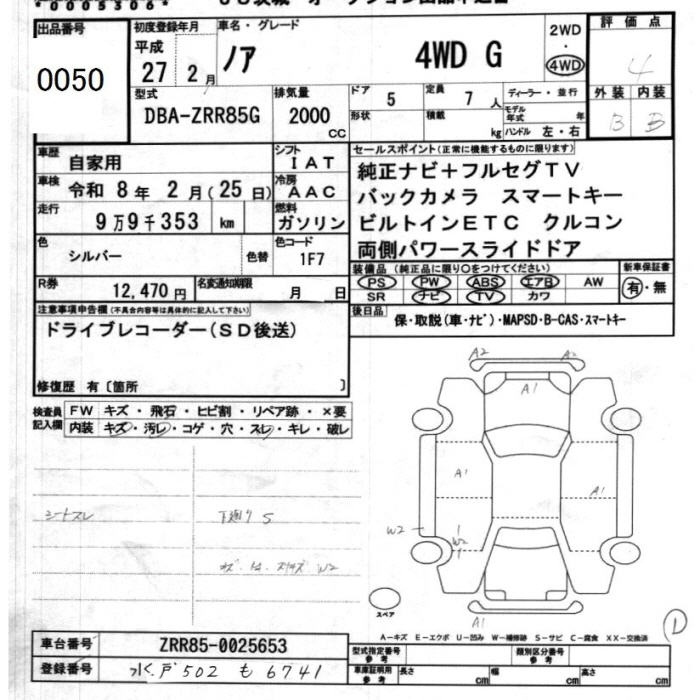 *0005306*
出品番号
0050
初度登録年月
平成
27 2月
車名・グレード
ノア 4WD G
2WD
・
4WD
評価点
4
外装 内装
B B
型式
DBA-ZRR85G
排気量
2000
cc
ドア 5
定員 7人
形状
積載 kg
ディーラー・並行
モデル年式 年
ハンドル 左・右
車歴 自家用
シフト IAT
車検 令和 8年 2月(25日)
冷房 AAC
走行 9万9千353 km
燃料 ガソリン
色 シルバー 色替
色コード 1F7
R券 12,470円
名変通知期限 月 日
セールスポイント(正常に機能するものに限ります)
純正ナビ+フルセグTV
バックカメラ スマートキー
ビルトインETC クルコン
両側パワースライドドア
装備品(純正品に限り○をつけてください)
PS PW ABS エアB AW
SR ナビ TV カワ
新車保証書
有・無
後日品 保・取説(車・ナビ)・MAPSD・B-CAS・スマートキー
注意事項申告欄(不具合内容等は具体的に記入して下さい)
ドライブレコーダー(SD後送)
修復歴 有〔箇所 〕
検査員記入欄
FW キズ・飛石・ヒビ割・リペア跡・×要
内装 キズ・汚レ・コゲ・穴・スレ・キレ・破レ
シートスレ
下廻り S
W2
A2 A2
A1
A1
A1
W2
W2
A1
スペア
D
A-キズ E-エクボ U-凹み W-補修跡 S-サビ C-腐食 XX-交換済
車台番号 ZRR85-0025653
登録番号 水戸502 も 6741
型式指定番号 参考
類別区分番号 参考
車庫証明用 参考
長さ cm
幅 cm
高さ cm